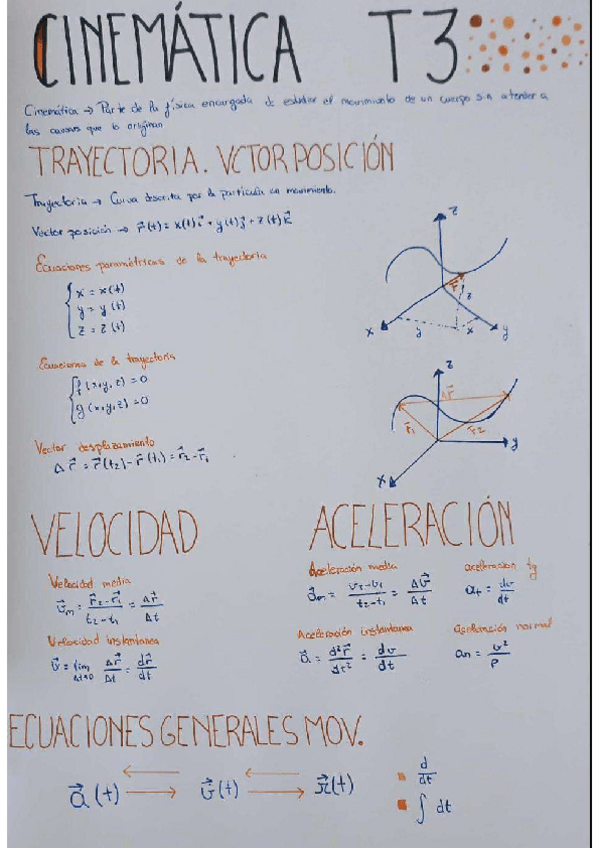 CINEMÁTICA T3
Cinemática → Parte de la física encargada de estudiar el movimiento de un cuerpo sin atender a
las causas que lo originan
TRAYECTORIA. VCTOR POSICIÓN
Trayectoria → Curva descrita por la partícula en movimiento.
Vector posición → r⃗(t) = x(t)i⃗ + y(t)j⃗ + z(t)k⃗
Ecuaciones paramétricas de la trayectoria
x = x(t)
y = y(t)
z = z(t)
z
r⃗
z
x y x y
Ecuaciones de la trayectoria
f(x,y,z) = 0
g(x,y,z) = 0
Vector desplazamiento
Δr⃗ = r⃗(t2) - r⃗(t1) = r⃗2 - r⃗1
z
Δr⃗
r⃗1 r⃗2
y
x
VELOCIDAD
Velocidad media
v⃗m = (r⃗2 - r⃗1)/(t2 - t1) = Δr⃗/Δt
Velocidad instantanea
v⃗ = lim Δt→0 Δr⃗/Δt = dr⃗/dt
ACELERACIÓN
Aceleración media
a⃗m = (v2 - v1)/(t2 - t1) = Δv⃗/Δt
aceleracion tg
at = dv/dt
Aceleración instantanea
a⃗ = d²r⃗/dt² = dv/dt
Aceleración normal
an = v²/ρ
ECUACIONES GENERALES MOV.
a⃗(t) ⇄ v⃗(t) ⇄ r⃗(t)
d/dt
∫ dt